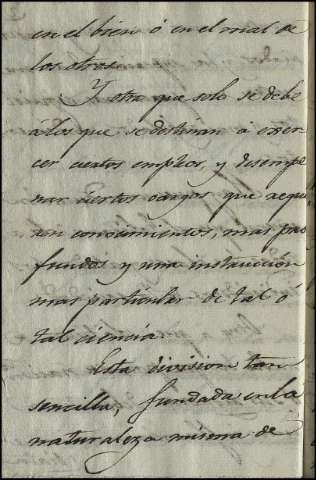 en el bien ó en el mal de
los otros.
Y otra que solo se debe
á los que se destinan á exer-
cer ciertos empleos, y desempe-
ñar ciertos cargos que requi-
ren conocimientos, mas pro-
fundos y una instruccion
mas particular de tal ó
tal ciencia.
Esta division tan
sencilla, fundada en la
naturaleza misma de